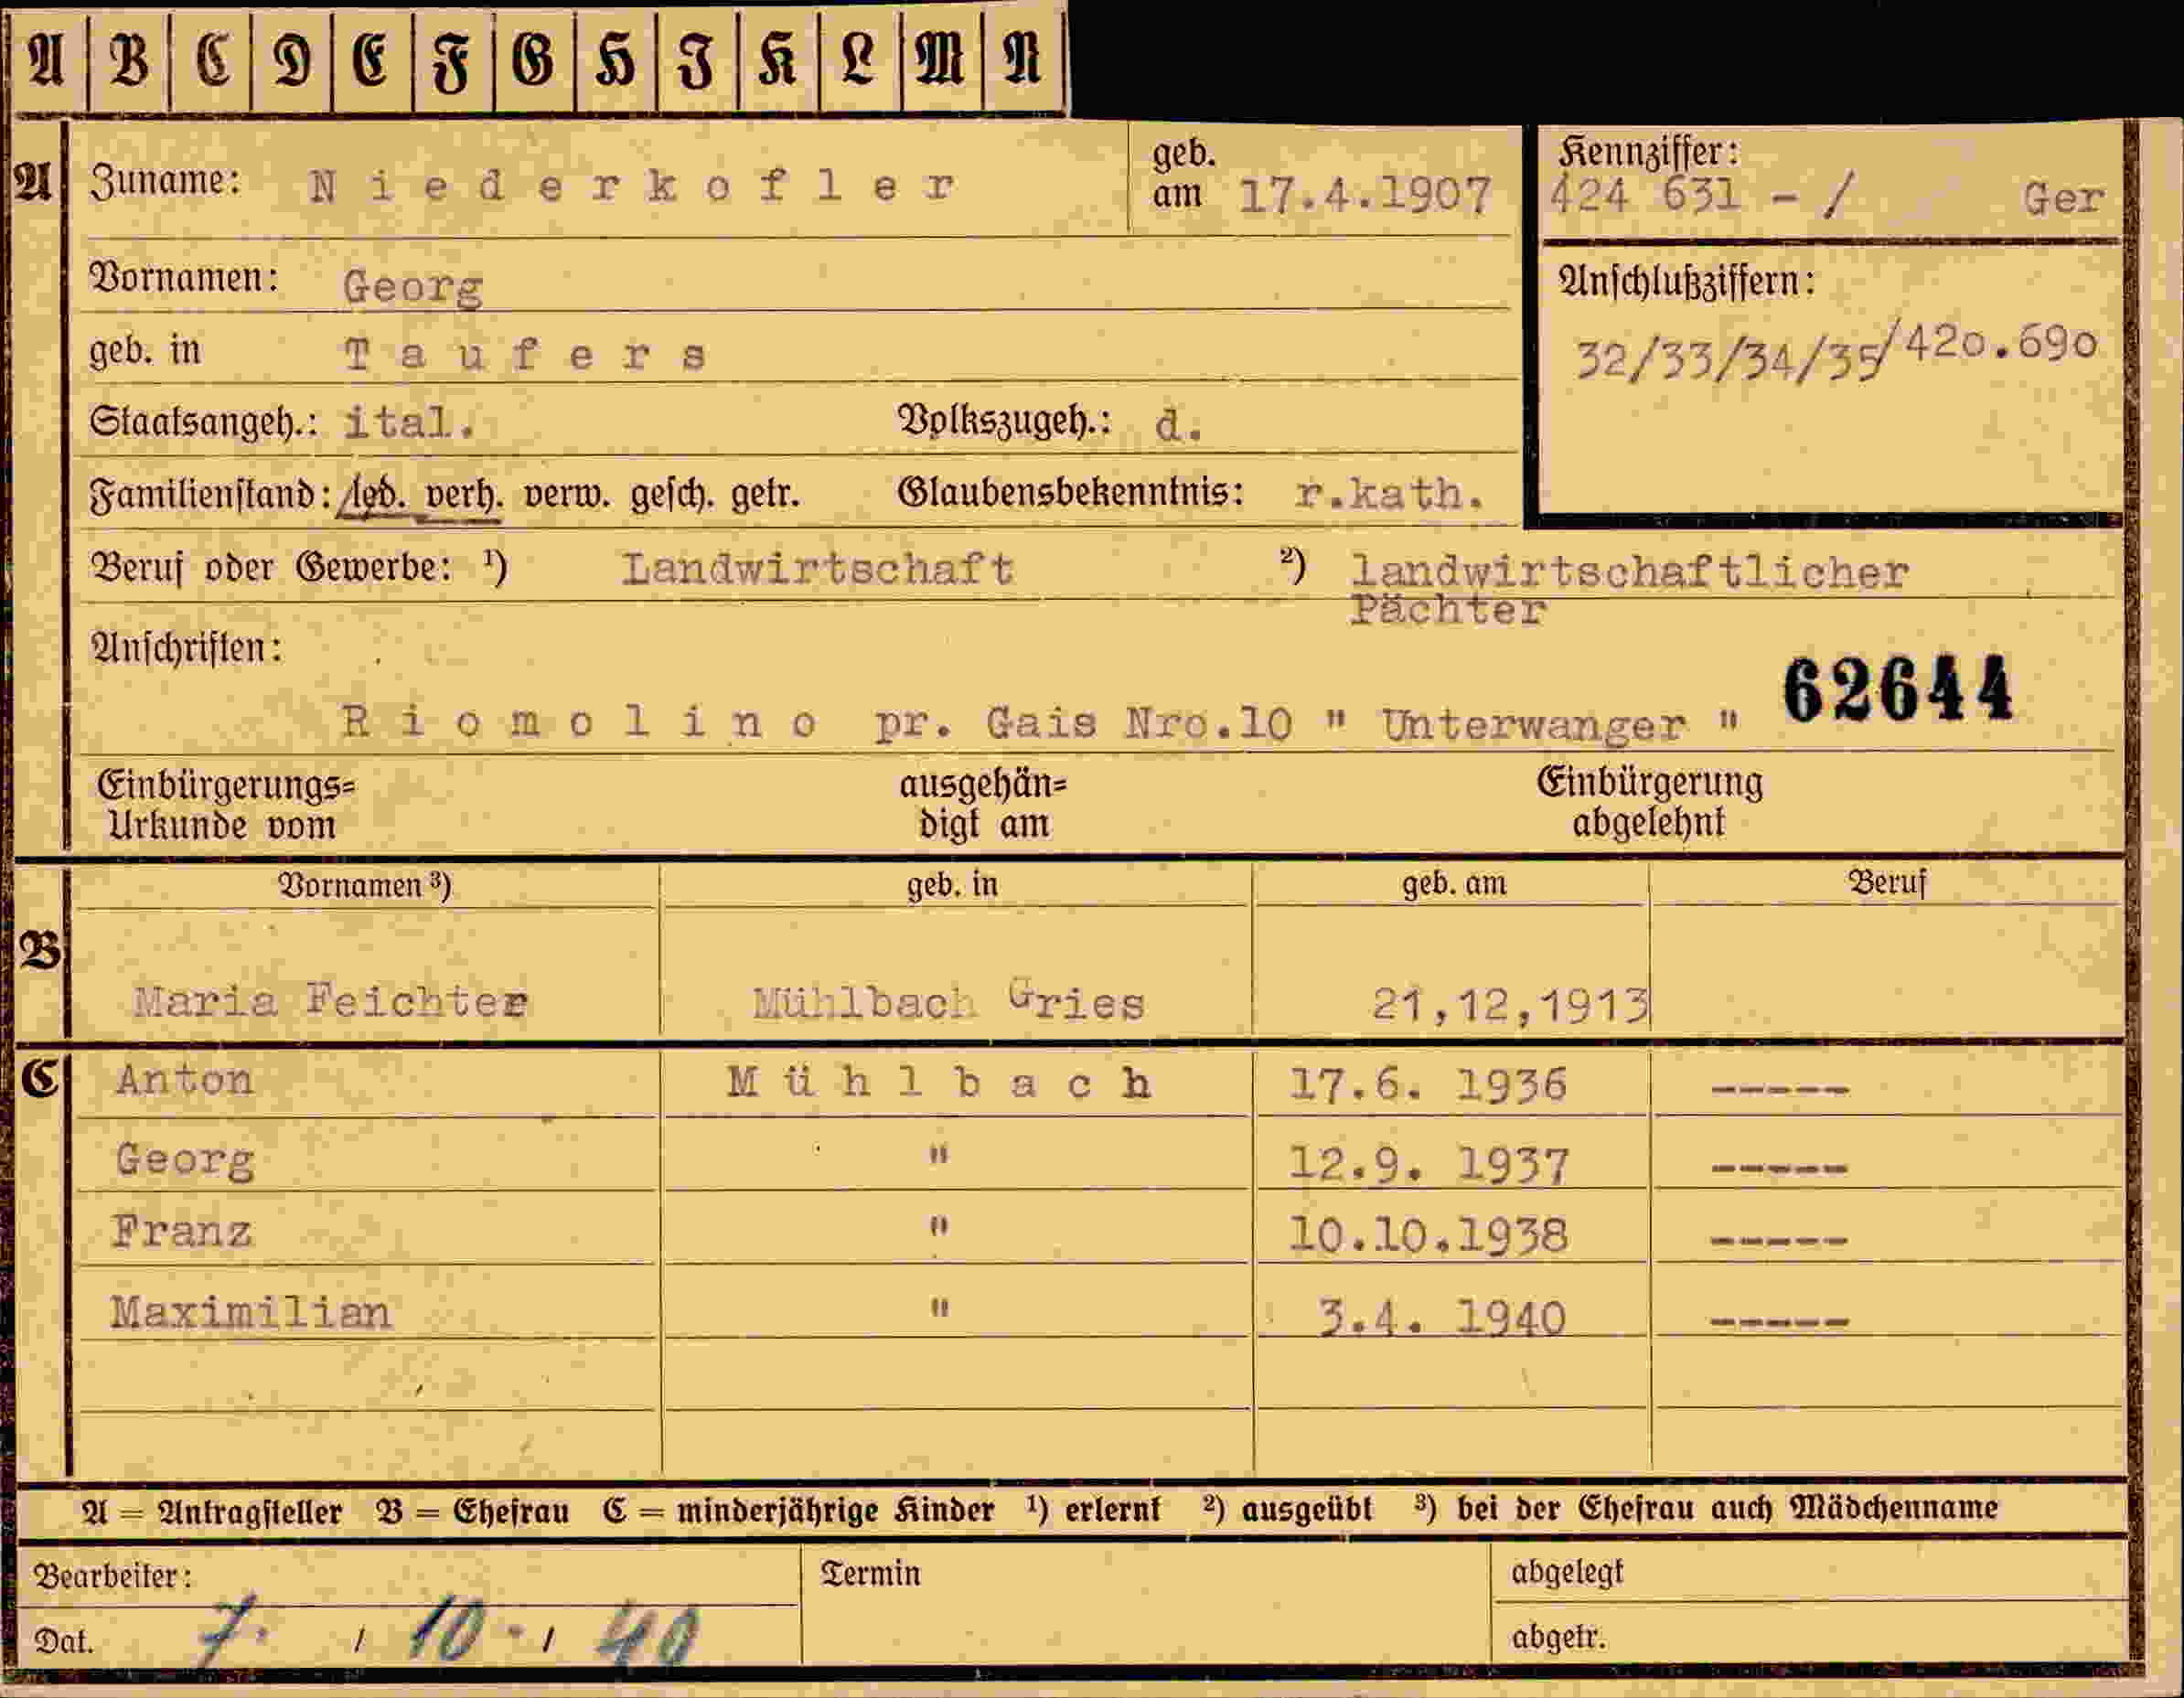 A B C D E F G H I K L M N
A Zuname: Niederkofler geb. am 17.4.1907 Kennziffer: 424 631 - / Ger
Vornamen: Georg Anschlußziffern:
geb. in Taufers 32/33/34/35/420.690
Staatsangeh.: ital. Volkszugeh.: d.
Familienstand: led. verh. verw. gesch. getr. Glaubensbekenntnis: r.kath.
Beruf oder Gewerbe: ¹) Landwirtschaft ²) landwirtschaftlicher
Pächter
Anschriften:
62644
Riomolino pr. Gais Nro.10 " Unterwanger "
Einbürgerungs= ausgehän= Einbürgerung
Urkunde vom digt am abgelehnt
Vornamen ³) geb. in geb. am Beruf
B
Maria Feichter Mühlbach Gries 21,12,1913
C Anton Mühlbach 17.6. 1936 -----
Georg " 12.9. 1937 -----
Franz " 10.10.1938 -----
Maximilian " 3.4. 1940 -----
A = Antragsteller B = Ehefrau C = minderjährige Kinder ¹) erlernt ²) ausgeübt ³) bei der Ehefrau auch Mädchenname
Bearbeiter: Termin abgelegt
Dat. 7. / 10. / 40 abgetr.